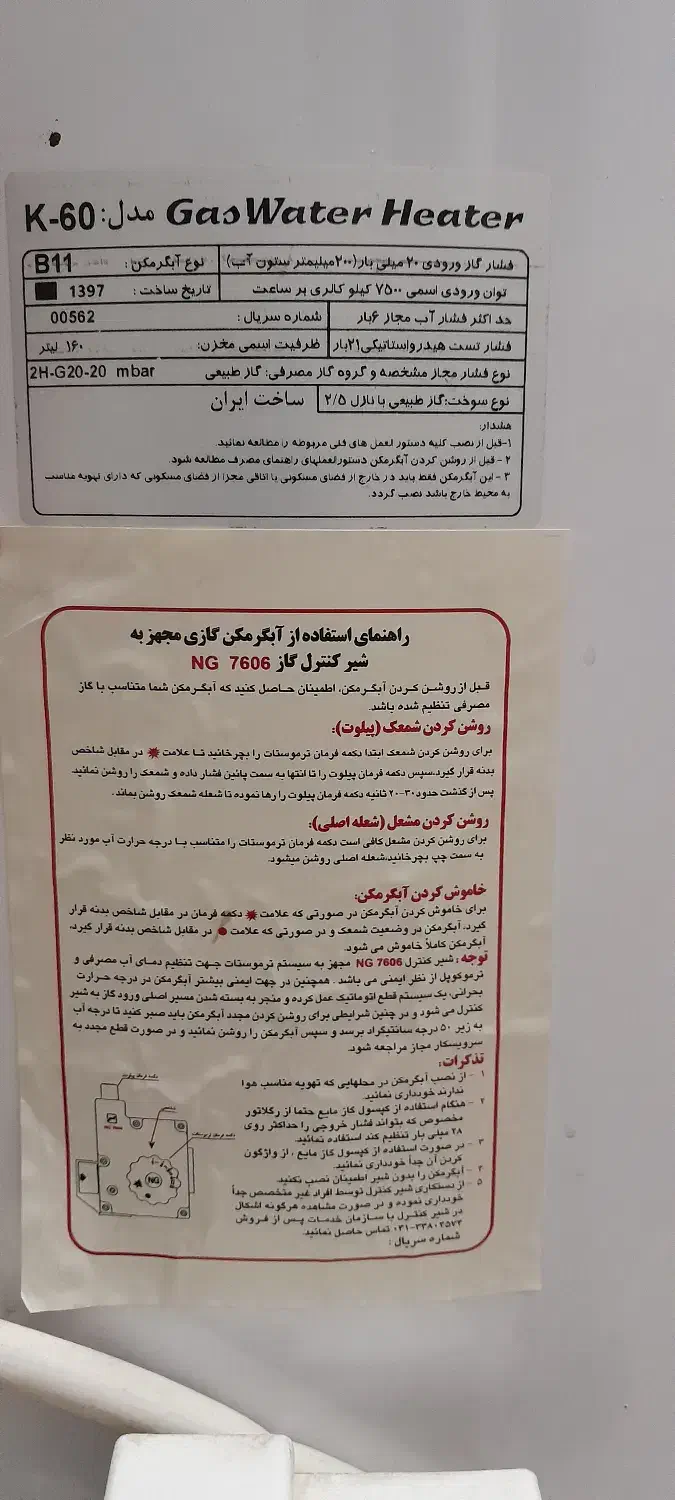 Gas Water Heater مدل: K-60
فشار گاز ورودی ۲۰ میلی بار(۲۰۰میلیمتر ستون آب) نوع آبگرمکن: B11
توان ورودی اسمی ۷۵۰۰ کیلو کالری بر ساعت تاریخ ساخت: 1397
حد اکثر فشار آب مجاز ۶بار شماره سریال: 00562
فشار تست هیدرواستاتیکی۲۱بار ظرفیت اسمی مخزن: ۱۶۰ لیتر
نوع فشار مجاز مشخصه و گروه گاز مصرفی: گاز طبیعی 2H-G20-20 mbar
نوع سوخت:گاز طبیعی با نازل ۲/۵ ساخت ایران
هشدار:
۱-قبل از نصب کلیه دستور لعمل های فنی مربوطه را مطالعه نمائید.
۲ - قبل از روشن کردن آبگرمکن دستورلعملهای راهنمای مصرف مطالعه شود.
۳ - این آبگرمکن فقط باید در خارج از فضای مسکونی یا اتاقی مجزا از فضای مسکونی که دارای تهویه مناسب
به محیط خارج باشد نصب گردد.
راهنمای استفاده از آبگرمکن گازی مجهز به
شیر کنترل گاز NG 7606
قبل از روشن کردن آبگرمکن، اطمینان حاصل کنید که آبگرمکن شما متناسب با گاز
مصرفی تنظیم شده باشد.
روشن کردن شمعک (پیلوت):
برای روشن کردن شمعک ابتدا دکمه فرمان ترموستات را بچرخانید تا علامت در مقابل شاخص
بدنه قرار گیرد،سپس دکمه فرمان پیلوت را تا انتها به سمت پائین فشار داده و شمعک را روشن نمائید.
پس از گذشت حدود ۳۰-۲۰ ثانیه دکمه فرمان پیلوت را رها نموده تا شعله شمعک روشن بماند.
روشن کردن مشعل (شعله اصلی):
برای روشن کردن مشعل کافی است دکمه فرمان ترموستات را متناسب با درجه حرارت آب مورد نظر
به سمت چپ بچرخانید،شعله اصلی روشن میشود.
خاموش کردن آبگرمکن:
برای خاموش کردن آبگرمکن در صورتی که علامت دکمه فرمان در مقابل شاخص بدنه قرار
گیرد، آبگرمکن در وضعیت شمعک و در صورتی که علامت ● در مقابل شاخص بدنه قرار گیرد،
آبگرمکن کاملاً خاموش می شود.
توجه: شیر کنترل NG 7606 مجهز به سیستم ترموستات جهت تنظیم دمای آب مصرفی و
ترموکوپل از نظر ایمنی می باشد. همچنین در جهت ایمنی بیشتر آبگرمکن در درجه حرارت
بحرانی، یک سیستم قطع اتوماتیک عمل کرده و منجر به بسته شدن مسیر اصلی ورود گاز به شیر
کنترل می شود و در چنین شرایطی برای روشن کردن مجدد آبگرمکن باید صبر کنید تا درجه آب
به زیر ۵۰ درجه سانتیگراد برسد و سپس آبگرمکن را روشن نمائید و در صورت قطع مجدد به
سرویسکار مجاز مراجعه شود.
تذکرات:
۱ - از نصب آبگرمکن در محلهایی که تهویه مناسب هوا
ندارند خودداری نمائید.
۲ - هنگام استفاده از کپسول گاز مایع حتما از رگلاتور
مخصوص که بتواند فشار خروجی را حداکثر روی
۲۸ میلی بار تنظیم کند استفاده نمائید.
۳ - در صورت استفاده از کپسول گاز مایع ، از واژگون
کردن آن جداً خودداری نمائید.
۴ - آبگرمکن را بدون شیر اطمینان نصب نکنید.
۵ - از دستکاری شیر کنترل توسط افراد غیر متخصص جداً
خودداری نموده و در صورت مشاهده هرگونه اشکال
در شیر کنترل با سازمان خدمات پس از فروش
۰۳۱-۳۳۸۰۲۵۷۳ تماس حاصل نمائید.
شماره سریال:
NG